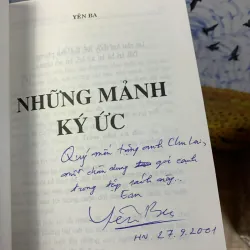 YÊN BA
NHỮNG MẢNH
KÝ ỨC
Quý mến tặng anh Chu Lai,
một chân dung gói cạnh
trong tập sách này...
Em
Yên Ba
HN 27.9.2001